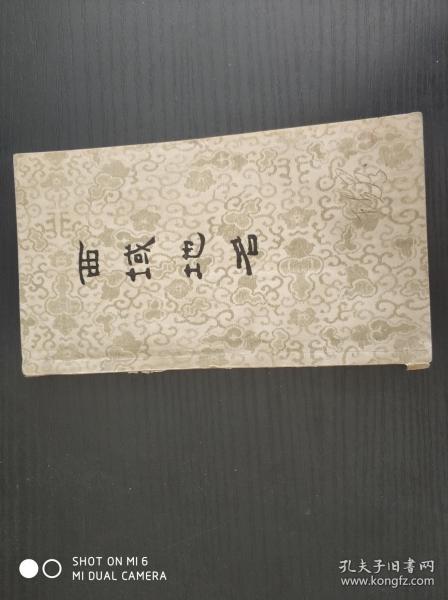 西域地名
SHOT ON MI 6
MI DUAL CAMERA
孔夫子旧书网
www.kongfz.com